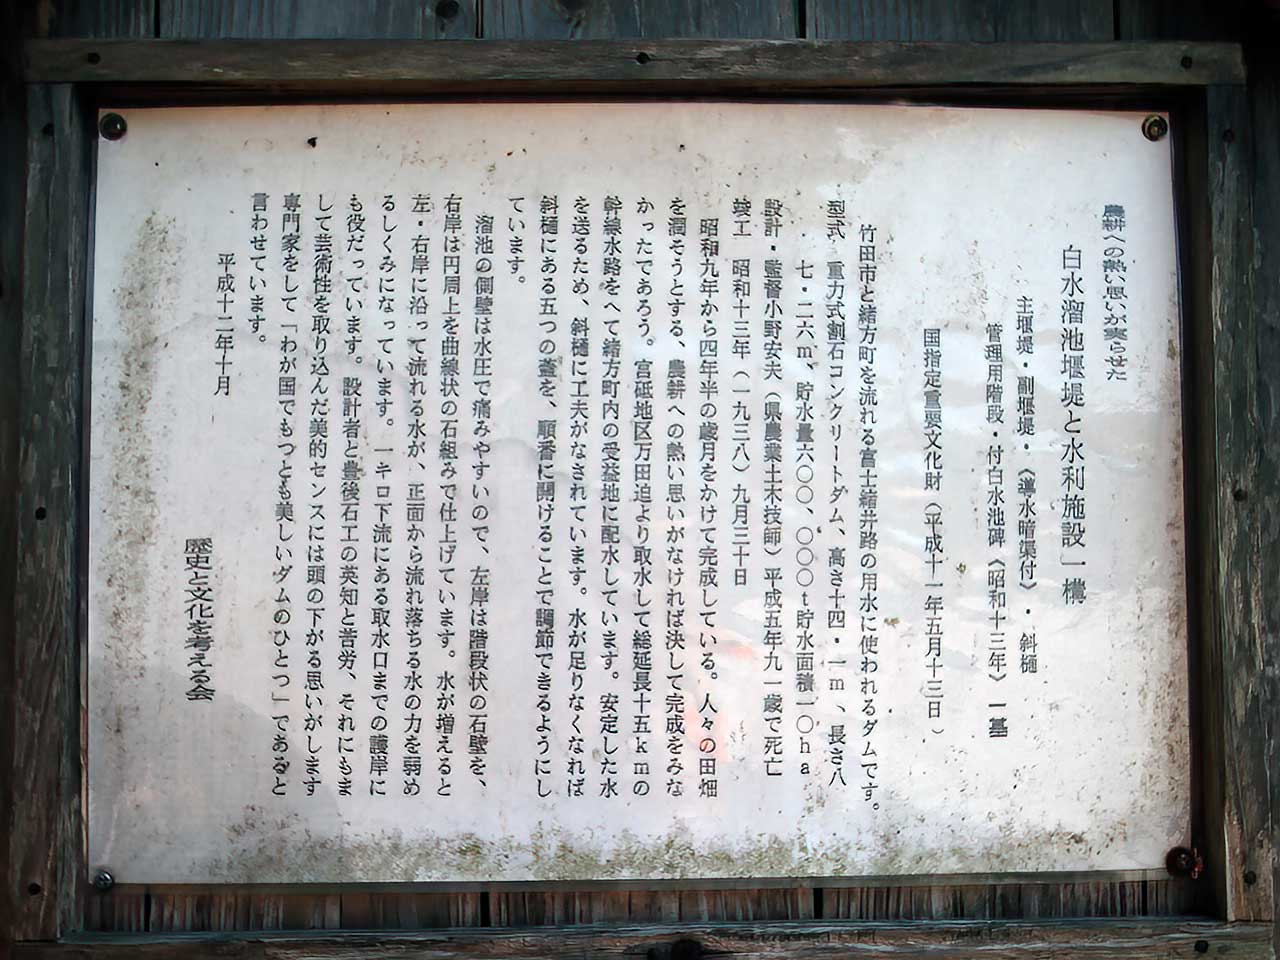 農耕への熱い思いが実らせた
白水溜池堰堤と水利施設」一構
主堰堤・副堰堤・《導水暗渠付》・斜樋
管理用階段・付白水池碑《昭和十三年》一基
国指定重要文化財（平成十一年五月十三日）
竹田市と緒方町を流れる富士緒井路の用水に使われるダムです。
型式　重力式割石コンクリートダム、高さ十四・一ｍ、長さ八
七・二六ｍ、貯水量六〇〇、〇〇〇ｔ貯水面積一〇ｈａ
設計・監督小野安夫（県農業土木技師）平成五年九一歳で死亡
竣工　昭和十三年（一九三八）九月三十日
昭和九年から四年半の歳月をかけて完成している。人々の田畑
を潤そうとする、農耕への熱い思いがなければ決して完成をみな
かったであろう。宮砥地区万田迫より取水して総延長十五ｋｍの
幹線水路をへて緒方町内の受益地に配水しています。安定した水
を送るため、斜樋に工夫がなされています。水が足りなくなれば
斜樋にある五つの蓋を、順番に開けることで調節できるようにし
ています。
溜池の側壁は水圧で痛みやすいので、左岸は階段状の石壁を、
右岸は円周上を曲線状の石組みで仕上げています。水が増えると
左・右岸に沿って流れる水が、正面から流れ落ちる水の力を弱め
るしくみになっています。一キロ下流にある取水口までの護岸に
も役だっています。設計者と豊後石工の英知と苦労、それにもま
して芸術性を取り込んだ美的センスには頭の下がる思いがします
専門家をして「わが国でもつとも美しいダムのひとつ」であると
言わせています。
平成十二年十月
歴史と文化を考える会